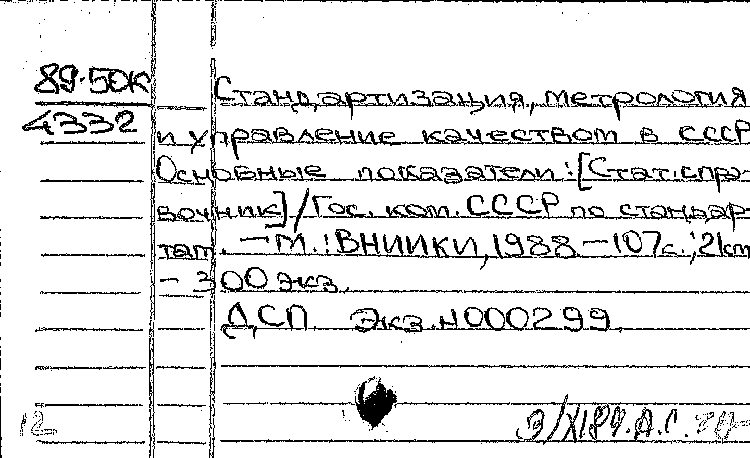 89-50К
4332
Стандартизация, метрология
и управление качеством в СССР
Основные показатели: [Стат. спра-
вочник] / Гос. ком. СССР по стандар-
там. — М.: ВНИИКИ, 1988 — 107с.; 21см
— 300 экз.
ДСП. Экз. N000299.
12